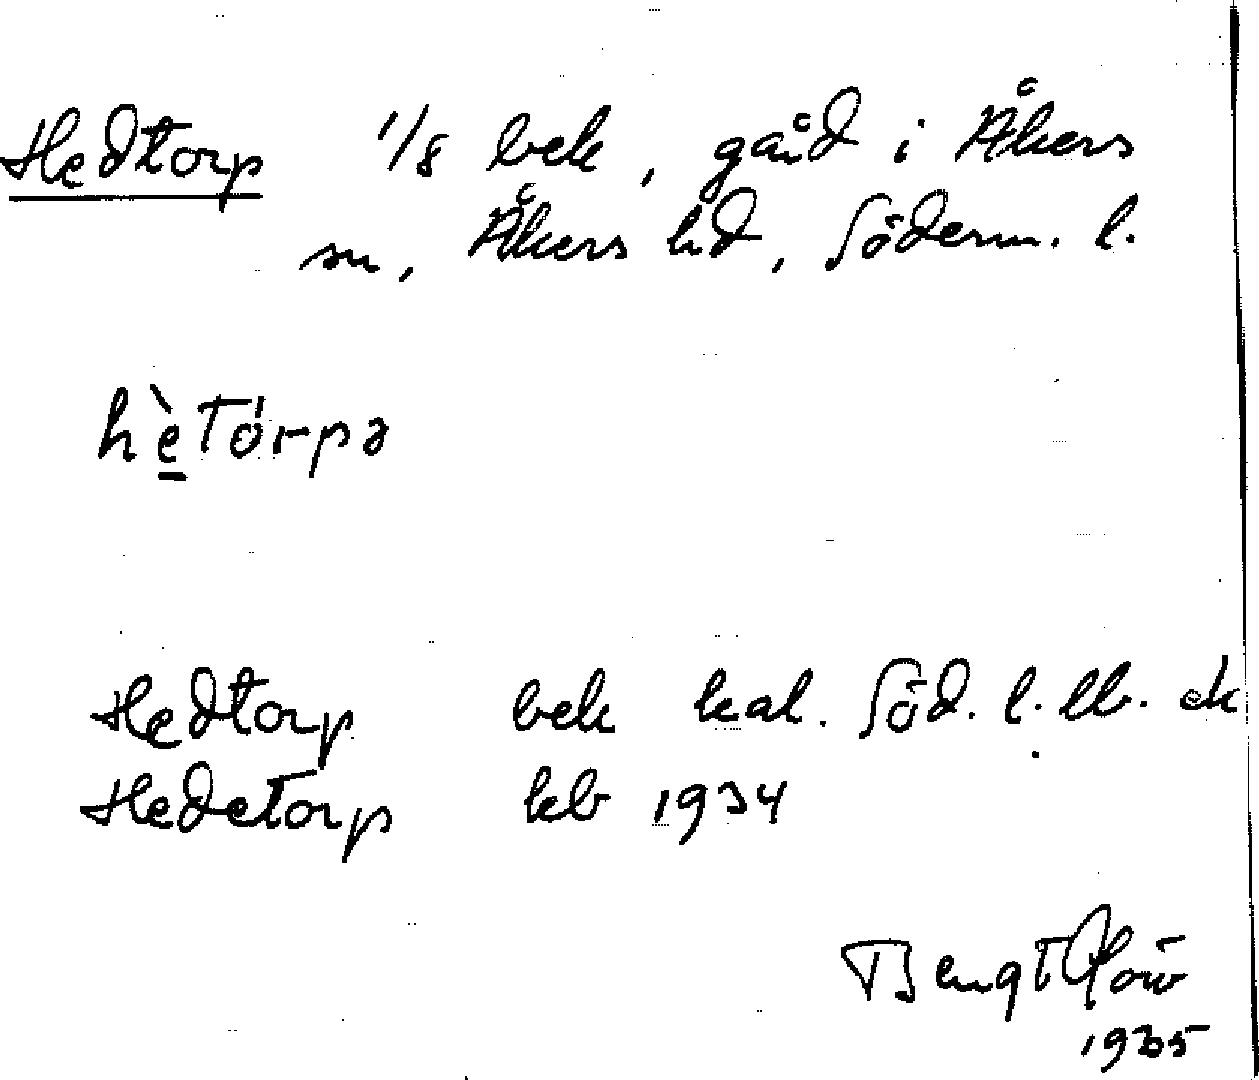 Hedtorp 1/8 bek, gård i Åkers
sn, Åkers hd, Söderm. l.
hètórpə
Hedtorp bek kal. Söd. l. lb. ek
Hedetorp kb 1934
Bengt
1935